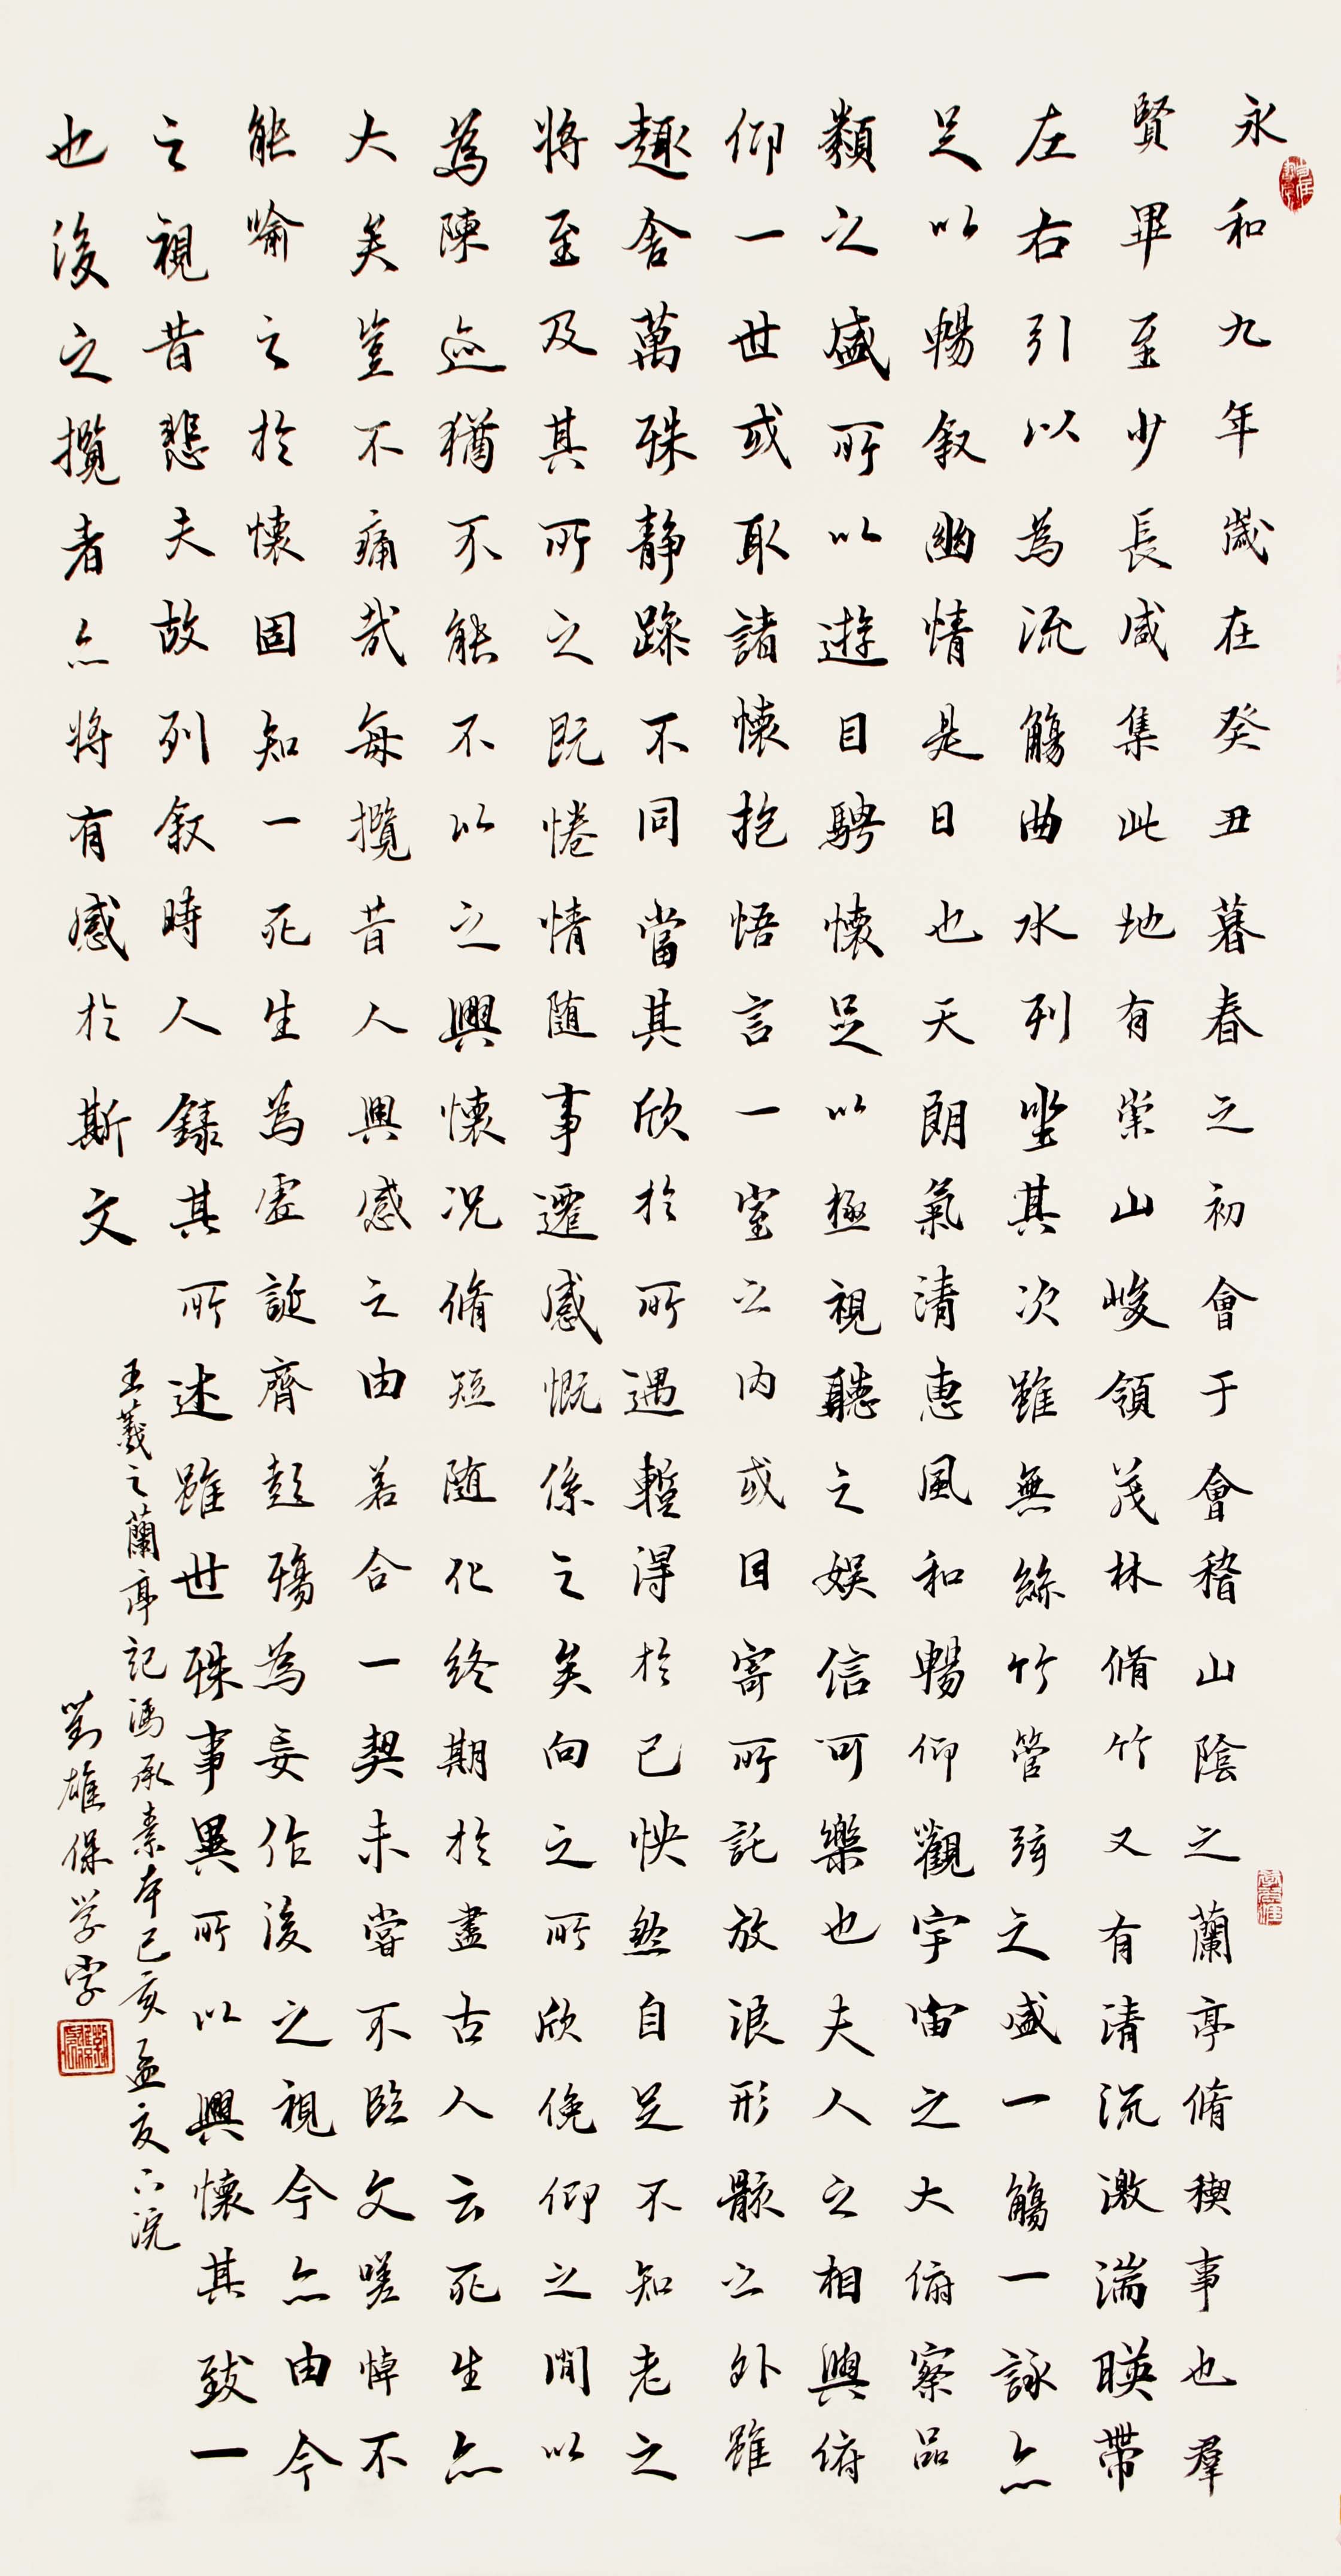 永和九年歲在癸丑暮春之初會于會稽山陰之蘭亭脩稧事也羣
賢畢至少長咸集此地有崇山峻領茂林脩竹又有清流激湍暎帶
左右引以為流觴曲水列坐其次雖無絲竹管弦之盛一觴一詠亦
足以暢叙幽情是日也天朗氣清惠風和暢仰觀宇宙之大俯察品
類之盛所以遊目騁懷足以極視聽之娛信可樂也夫人之相與俯
仰一世或取諸懷抱悟言一室之內或因寄所託放浪形骸之外雖
趣舍萬殊靜躁不同當其欣於所遇暫得於己怏然自足不知老之
將至及其所之既惓情随事遷感慨係之矣向之所欣俛仰之閒以
為陳迹猶不能不以之興懷況脩短随化終期於盡古人云死生亦
大矣豈不痛哉每攬昔人興感之由若合一契未嘗不臨文嗟悼不
能喻之於懷固知一死生為虛誕齊彭殤為妄作後之視今亦由今
之視昔悲夫故列叙時人錄其所述雖世殊事異所以興懷其致一
也後之攬者亦將有感於斯文
王羲之蘭亭記馮承素本己亥孟夏下浣
劉雄保学字